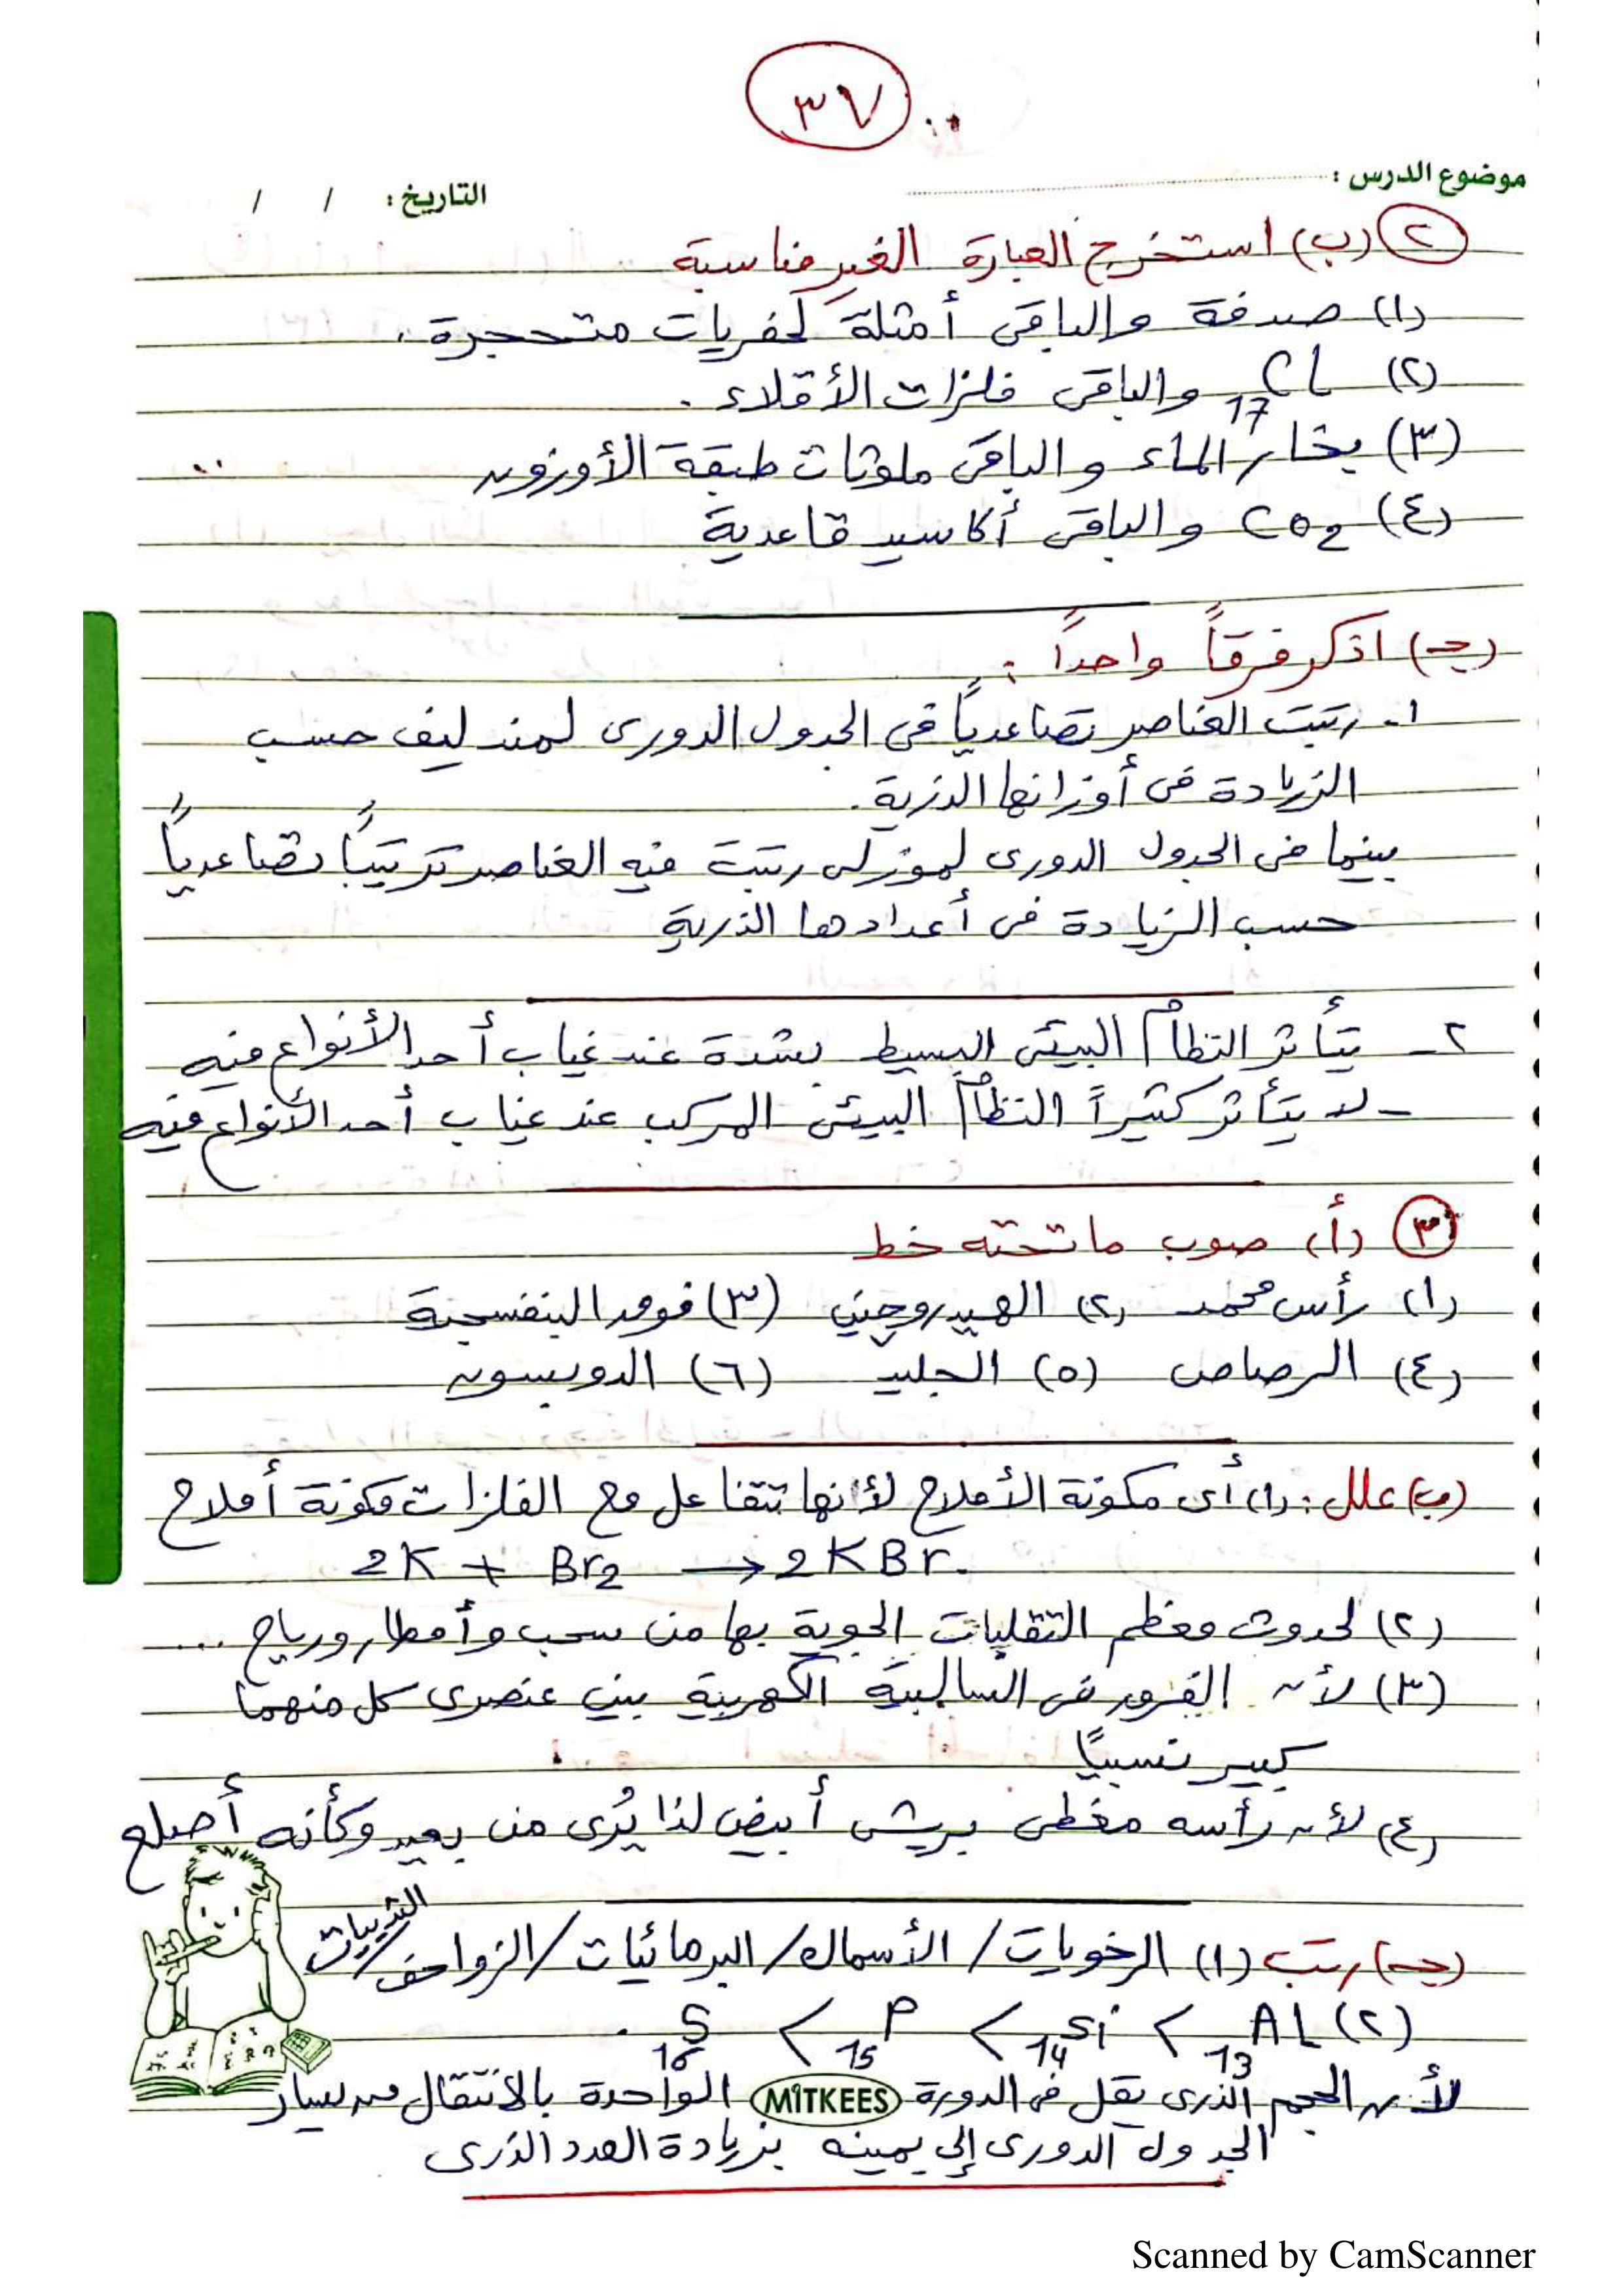 ٣٧
موضوع الدرس : التاريخ : / /
٢ (ب) استخرج العبارة الغير مناسبة
(١) صدفة والباقى أمثلة لحفريات متحجرة .
(٢) 17Cl والباقى فلزات الأقلاء .
(٣) بخار الماء والباقى ملوثات طبقة الأوزون
(٤) CO2 والباقى أكاسيد قاعدية
(جـ) اذكر فرقاً واحداً :
١- رتبت العناصر تصاعدياً فى الجدول الدورى لمندليف حسب
الزيادة فى أوزانها الذرية .
بينما فى الجدول الدورى لموزلى رتبت فيه العناصر ترتيباً تصاعدياً
حسب الزيادة فى أعدادها الذرية
٢- يتأثر النظام البيئى البسيط بشدة عند غياب أحد الأنواع فيه
- لا يتأثر كثيراً النظام البيئى المركب عند غياب أحد الأنواع فيه
٣ (أ) صوب ما تحته خط
(١) رأس محمد (٢) الهيدروچينى (٣) فوق البنفسجية
(٤) الرصاص (٥) الجليد (٦) الدوبسون
(ب) علل : (١) أى مكونة الأملاح لأنها تتفاعل مع الفلزات مكونة أملاح
2K + Br2 → 2KBr.
(٢) لحدوث معظم التقلبات الجوية بها من سحب وأمطار ورياح ...
(٣) لأن الفرق فى السالبية الكهربية بين عنصرى كل منهما
كبير نسبيًا
(٤) لأن رأسه مغطى بريش أبيض لذا يُرى من بعيد وكأنه أصلع
(جـ) رتب (١) الرخويات / الأسماك / البرمائيات / الزواحف / الثدييات
(٢) 13Al > 14Si > 15P > 16S .
لأن الحجم الذرى يقل فى الدورة الواحدة بالانتقال من يسار
MITKEES
الجدول الدورى إلى يمينه بزيادة العدد الذرى
Scanned by CamScanner